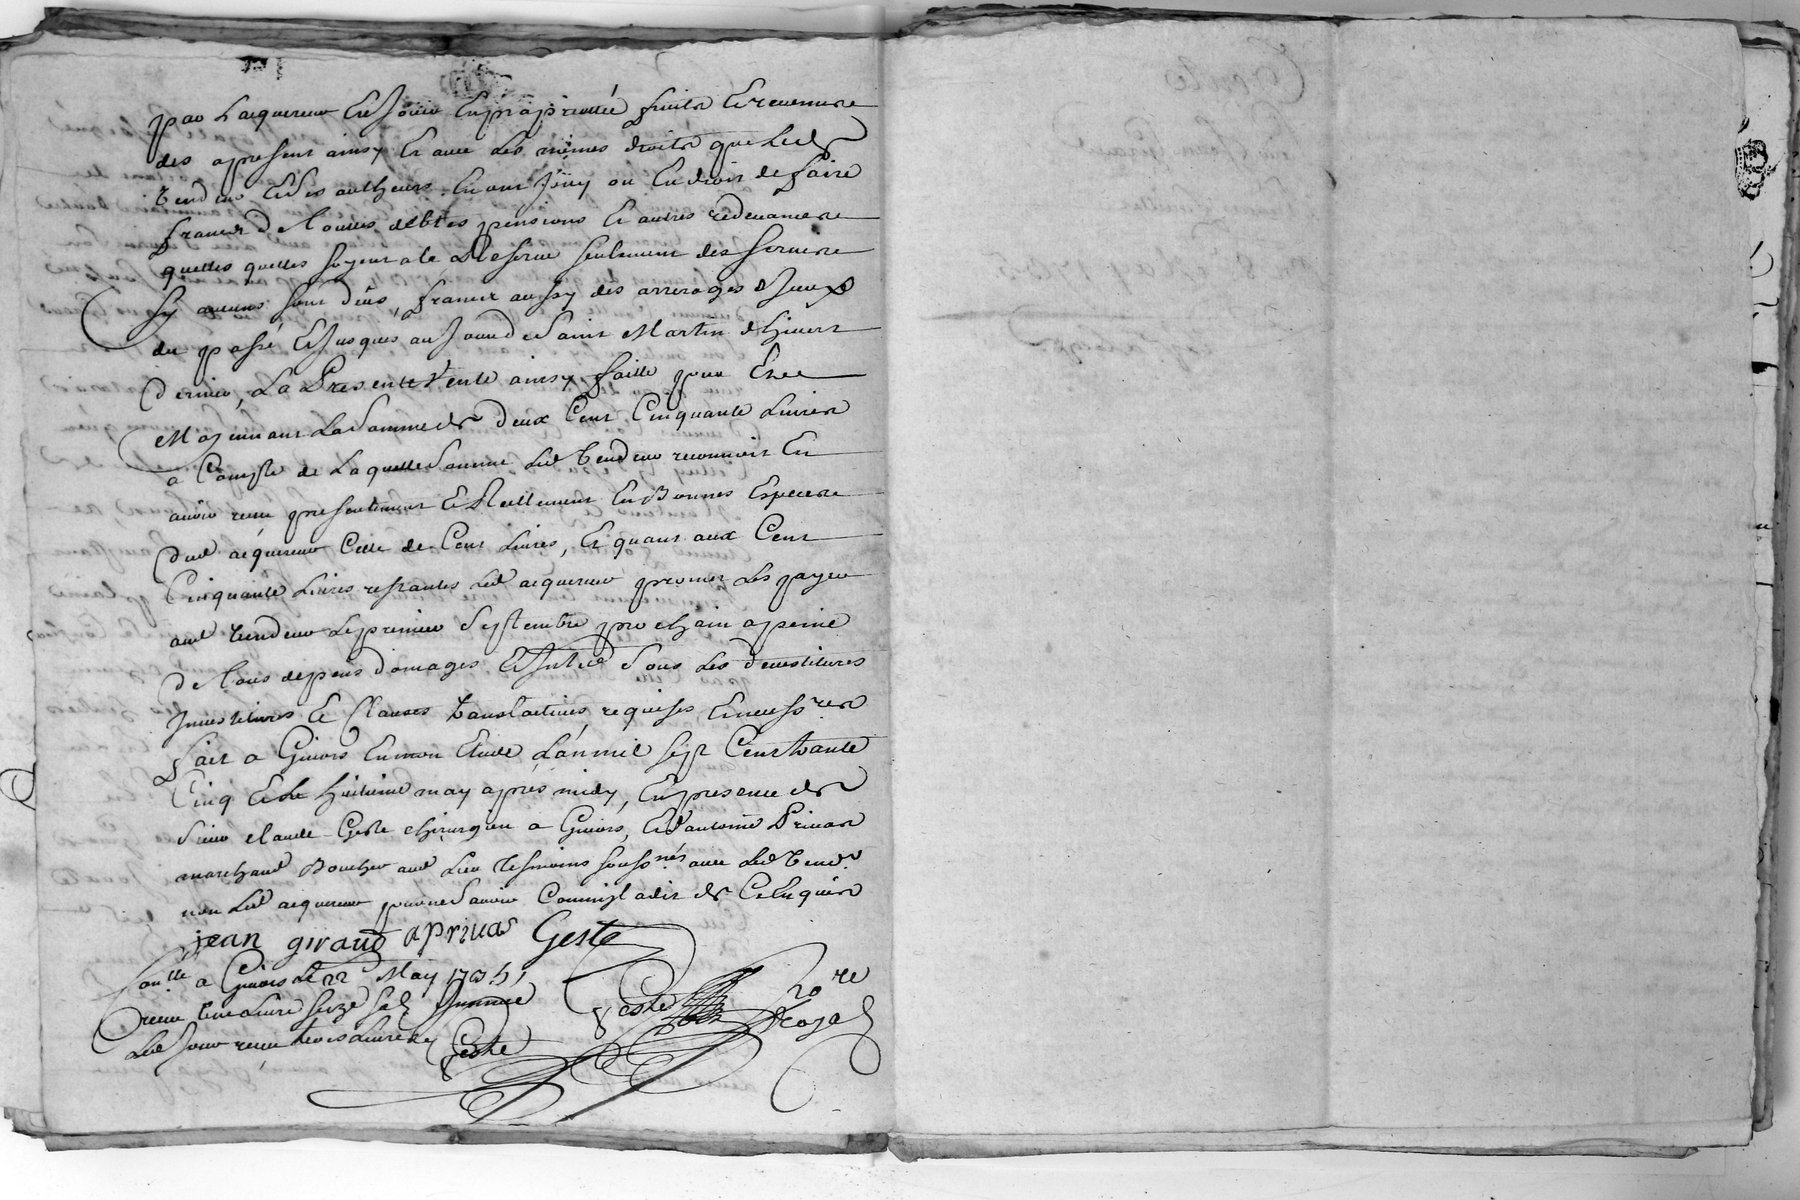 par Lacquereur Et Jouir En proprietté fruits Et revenus
des apresent ainsy Et avec Les mêmes droits que Led
Vendeur Et Ses autheurs En ont Jouy ou Eu droit de faire
franc de Toutes debtes pensions Et autres redevances
quelles quelles soyent a la Reserve seulement des servis
sy aucuns sont dûs, franc aussy des arrerages d'Jceux
du passé Et Jusques au Jour de Saint Martin d'hivert
dernier, La Presente Vente ainsy faitte pour Et
Moyennant La Somme de deux Cent Cinquante Livres
a Compte de Laquelle Somme Led Vendeur reconnoit En
avoir receu presentement Et Reellement En Bonnes Especes
dud acquereur Celle de Cent Livres, Et quant aux Cent
Cinquante Livres restantes Led acquereur promet Les payer
aud Vendeur Le premier Septembre prochain a peine
de Tous depens domages Et Sous Les devestitures
Jnvestitures Et Clauses translatives requises
fait a Givors En mon Etude L'an mil sept Cent trante
Cinq Et Le huitieme may après midy, En presence de
Sieur claude Geste chirurgien a Givors, Et d'antoine Privas
marchand Boucher aud Lieu Tesmoins soussnés avec Led Vendr
non Led acquereur pour ne Savoir Comme jl a dit de Ce Enquis
jean giraud aprivas Geste
a Givors Le 22e May 1735
receu une Livre seize s
Led Jour receu trois Livres
Geste
Geste
no re
Royal